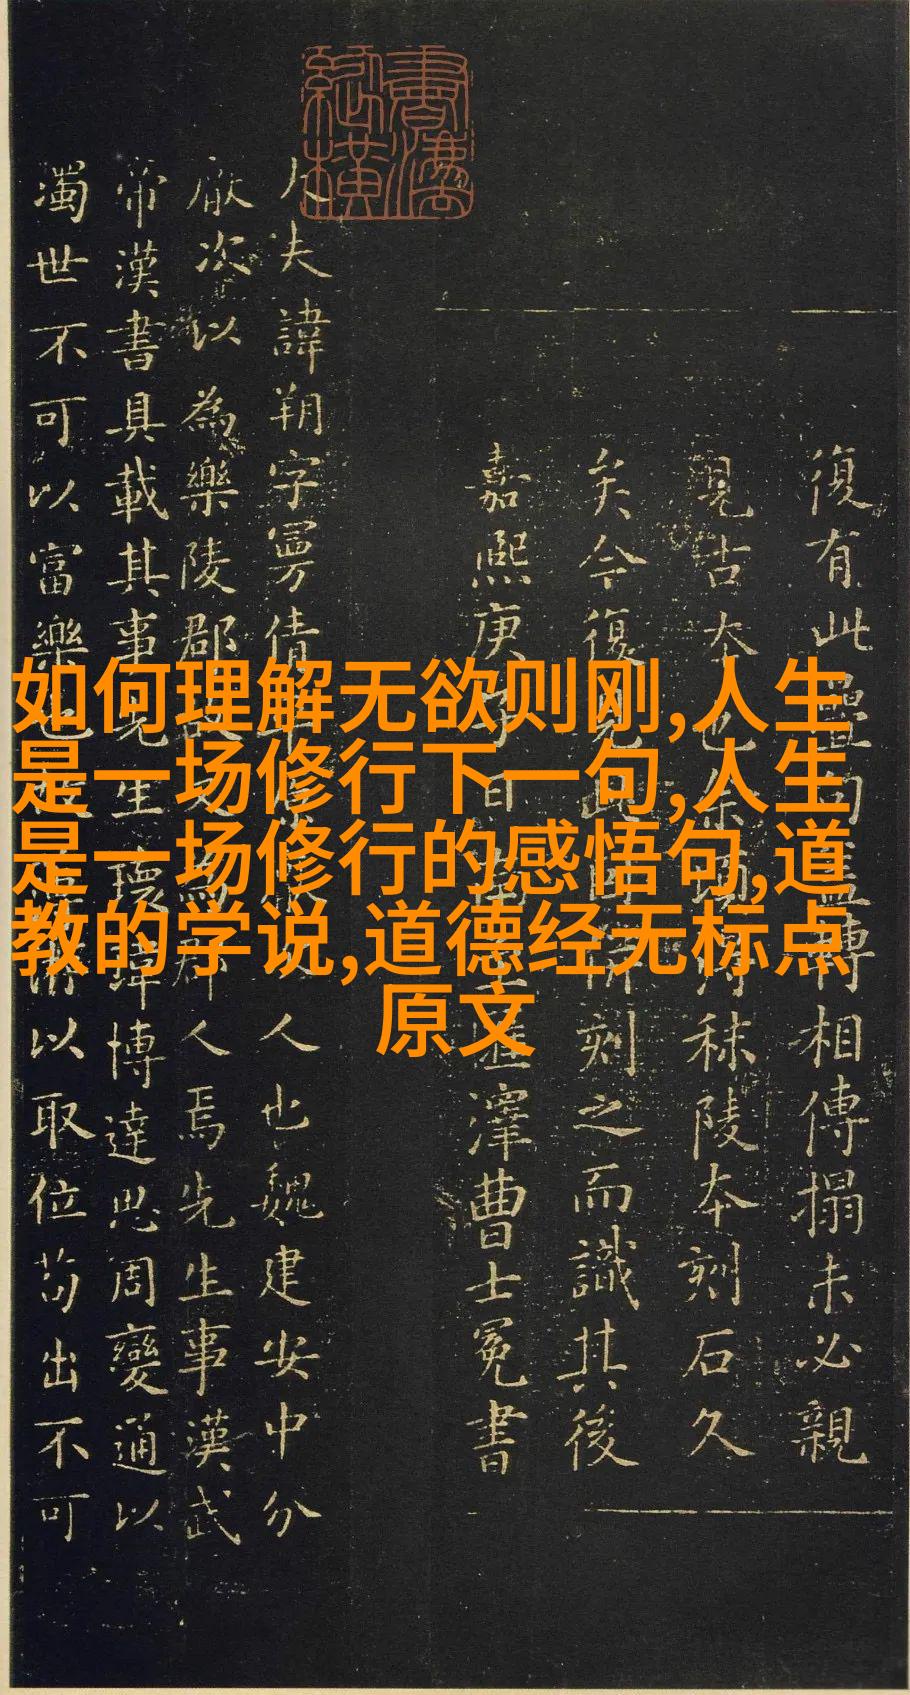 如何理解无欲则刚,人生
是一场修行下一句,人生
是一场修行的感悟句,道
教的学说,道德经无标点
原文
復有此傳相傳搨未必親
見古本也秣陵本刻石久
矣今復見刻之而識其後
嘉熙庚子澤曹士冕書
大夫諱朔字曼倩人也魏建安中分
厭次以為樂陵郡郡人焉先生事漢武
帝漢書具載其事先生瓌瑋博達思周變通以
濁世不可以富樂也以取位苟出不可